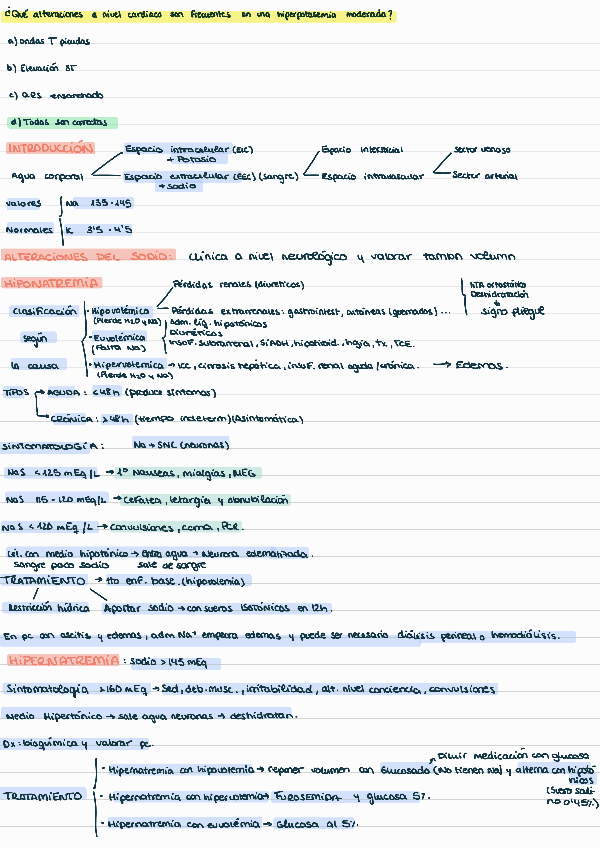 ¿Qué alteraciones a nivel cardiaco son frecuentes en una hiperpotasemia moderada?
a) ondas T picudas
b) Elevación ST
c) QRS ensanchado
d) Todas son correctas
INTRODUCCIÓN
Espacio intracelular (EIC)
+ Potasio
Espacio intersticial
sector venoso
Agua corporal
Espacio extracelular (EEC) (sangre)
+ sodio
Espacio intravascular
Sector arterial
Valores
Na 135-145
Normales
K 3'5 - 4'5
ALTERACIONES DEL SODIO: Clínica a nivel neurológico y valorar tambn volumn
HIPONATREMIA
Pérdidas renales (diuréticos)
HTA ortostática
Deshidratación
signo pliegue
Clasificación
según
la causa
· Hipovolémica
(Pierde H2O y Na)
Pérdidas extrarrenales: gastrointest, cutáneas (quemados) ...
· Euvolémica
(Falta Na)
Adm. liq. hipotónicos
Diuréticos
Insuf. suprarrenal, SIADH, hipotiroid., TCE.
· Hipervolémica → ICC, cirrosis hepática, insuf. renal aguda/crónica. → Edemas.
(Pierde H2O y Na)
TIPOS → AGUDA: <48h (produce síntomas)
CRÓNICA: >48h (tiempo indeterm) (Asintomática)
SINTOMATOLOGÍA: Na → SNC (neuronas)
NaS <125 mEq/L → 1º Nauseas, mialgias, MEG
NaS 115 - 120 mEq/L → Cefalea, letargia y obnubilación
NaS <120 mEq/L → convulsiones, coma, PCR.
Cel. con medio hipotónico → Entra agua → Neurona edematizada.
sangre poco sodio sale de sangre
TRATAMIENTO → tto enf. base. (hipovolemia)
Restricción hídrica Aportar sodio → con sueros ISOTÓNICOS en 12h.
En pc con ascitis y edemas, adm Na+ empeora edemas y puede ser necesario diálisis perineal o homodiálisis.
HIPERNATREMIA: sodio >145 mEq
Sintomatología >160 mEq → Sed, deb. musc., irritabilidad, alt. nivel conciencia, convulsiones
Medio Hipertónico → sale agua neuronas → deshidratan.
Dx: bioquímica y valorar pc.
Diluir medicación con glucosa
TRATAMIENTO
· Hipernatremia con hipovolemia → reponer volumen con Glucosado (No tienen Na) y alterna con hipotónicos
(suero salino 0'45%)
· Hipernatremia con hipervolemia → FUROSEMIDA y glucosa 5%.
· Hipernatremia con euvolemia → Glucosa al 5%.